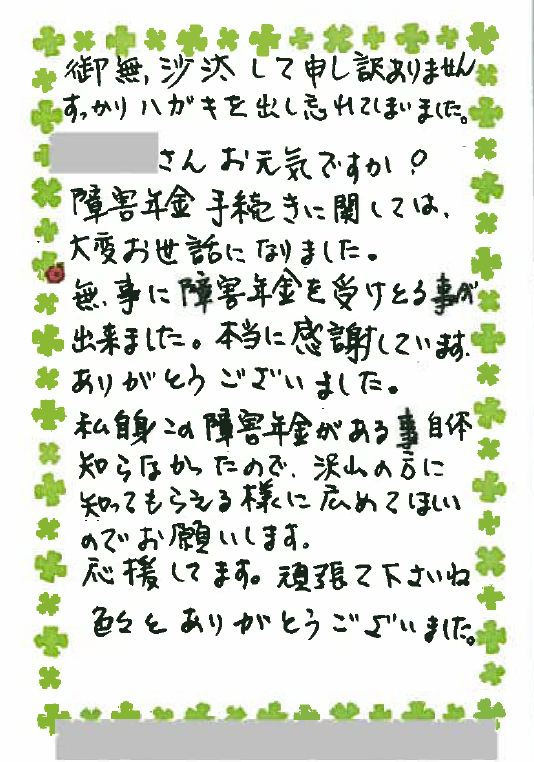 御無沙汰して申し訳ありません
すっかりハガキを出し忘れてしまいました。
さんお元気ですか?
障害年金手続きに関しては、
大変お世話になりました。
無事に障害年金を受けとる事が
出来ました。本当に感謝しています。
ありがとうございました。
私自身この障害年金がある事自体
知らなかったので、沢山の方に
知ってもらえる様に広めてほしい
のでお願いします。
応援してます。頑張て下さいね
色々とありがとうございました。